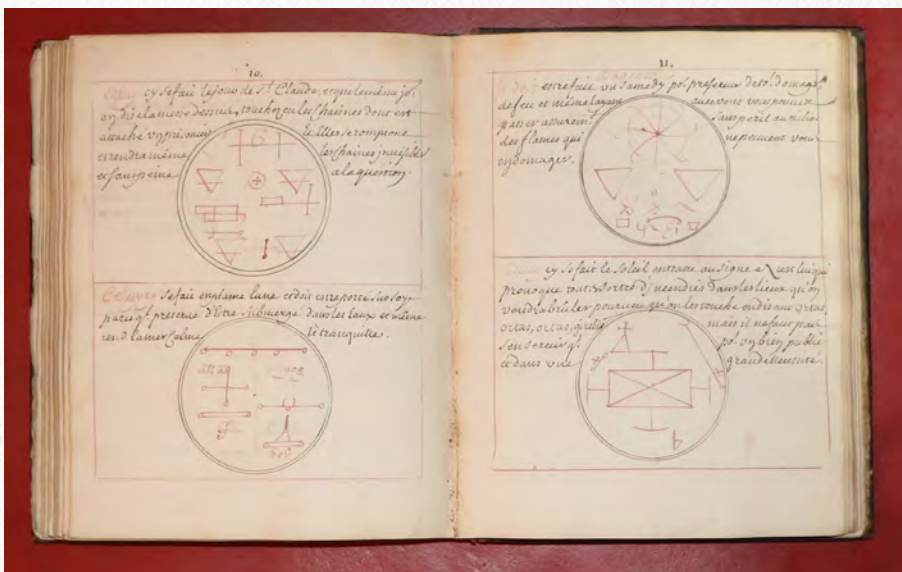 10.
cy se fait le jour de St. Claude, et qui le même jo.
on dis la messe dessus, touchez en les chaines dont est
attaché un prisonier
et elles se romprone
et rendra même
les chaines jnvisibles
et sans peine
a la question.
se fait en plaine lune et doit etre porté sus soy,
par ce q. préserve d'être submergé dans les eaux et même
rend la mer Calme
et tranquille.
11.
est refait un samedy po. preserver de to. domage
de feu et même layant
avec vous vous pouvez
passer assurem.
sans peril au milieu
des flames qui
ne peuvent vous
endomager.
cy se fait le Soleil entrant au signe cest lui qui
provoque toutes sortes d'jncendies dans les lieux qu'on
voudra brûler pourvu qu'on les touche en disant ortas,
ortas, ortas,
mais il ne faut pas
s'en servir q.
po. un bien public
et dans une
grande necessité.